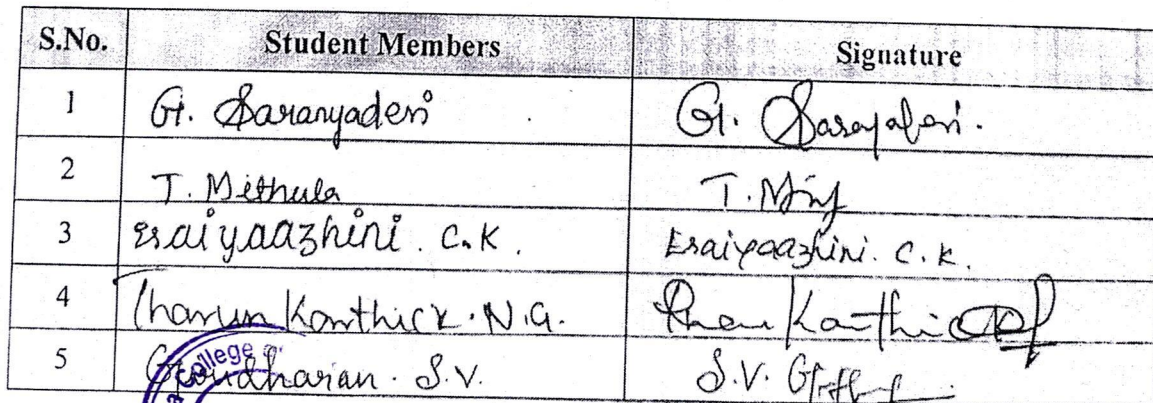 S.No. Student Members Signature
1 G. Saranyadevi G. Saranyadevi.
2 T. Mithula T.
3 Esaiyaazhini. C.K. Esaiyaazhini. C.K.
4 Tharun Karthick. N.G. Karthick
5 S.V. S.V.
College